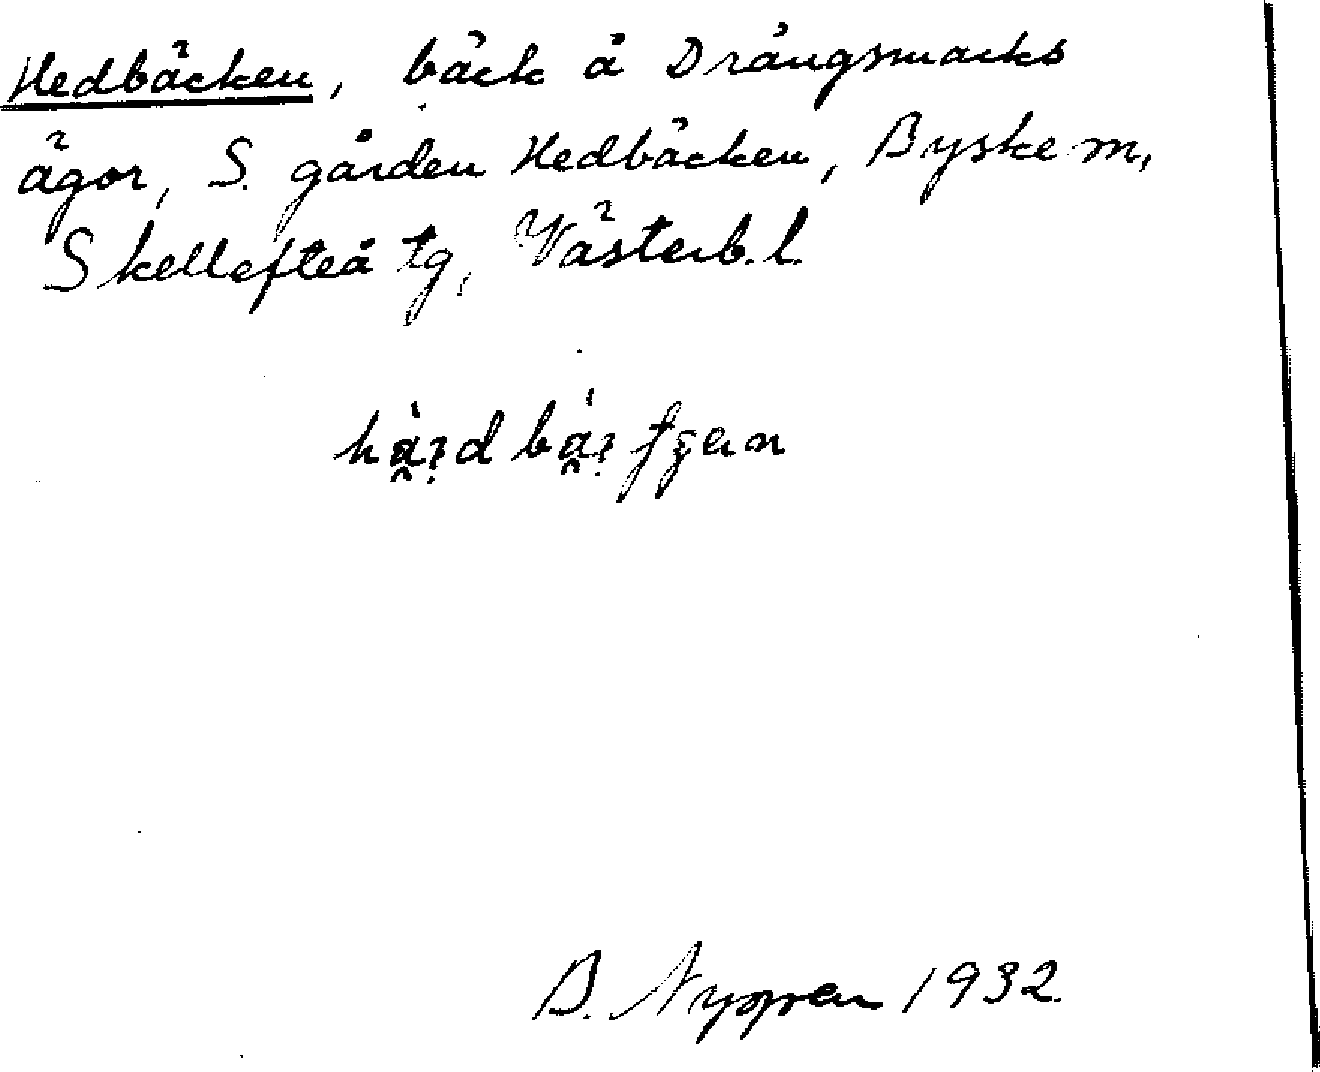 Hedbäcken, bäck å Drängsmarks
ägor, S. gården Hedbäcken, Byske sn,
Skellefteå tg, Västerb. l.
B. Nyppen 1932.